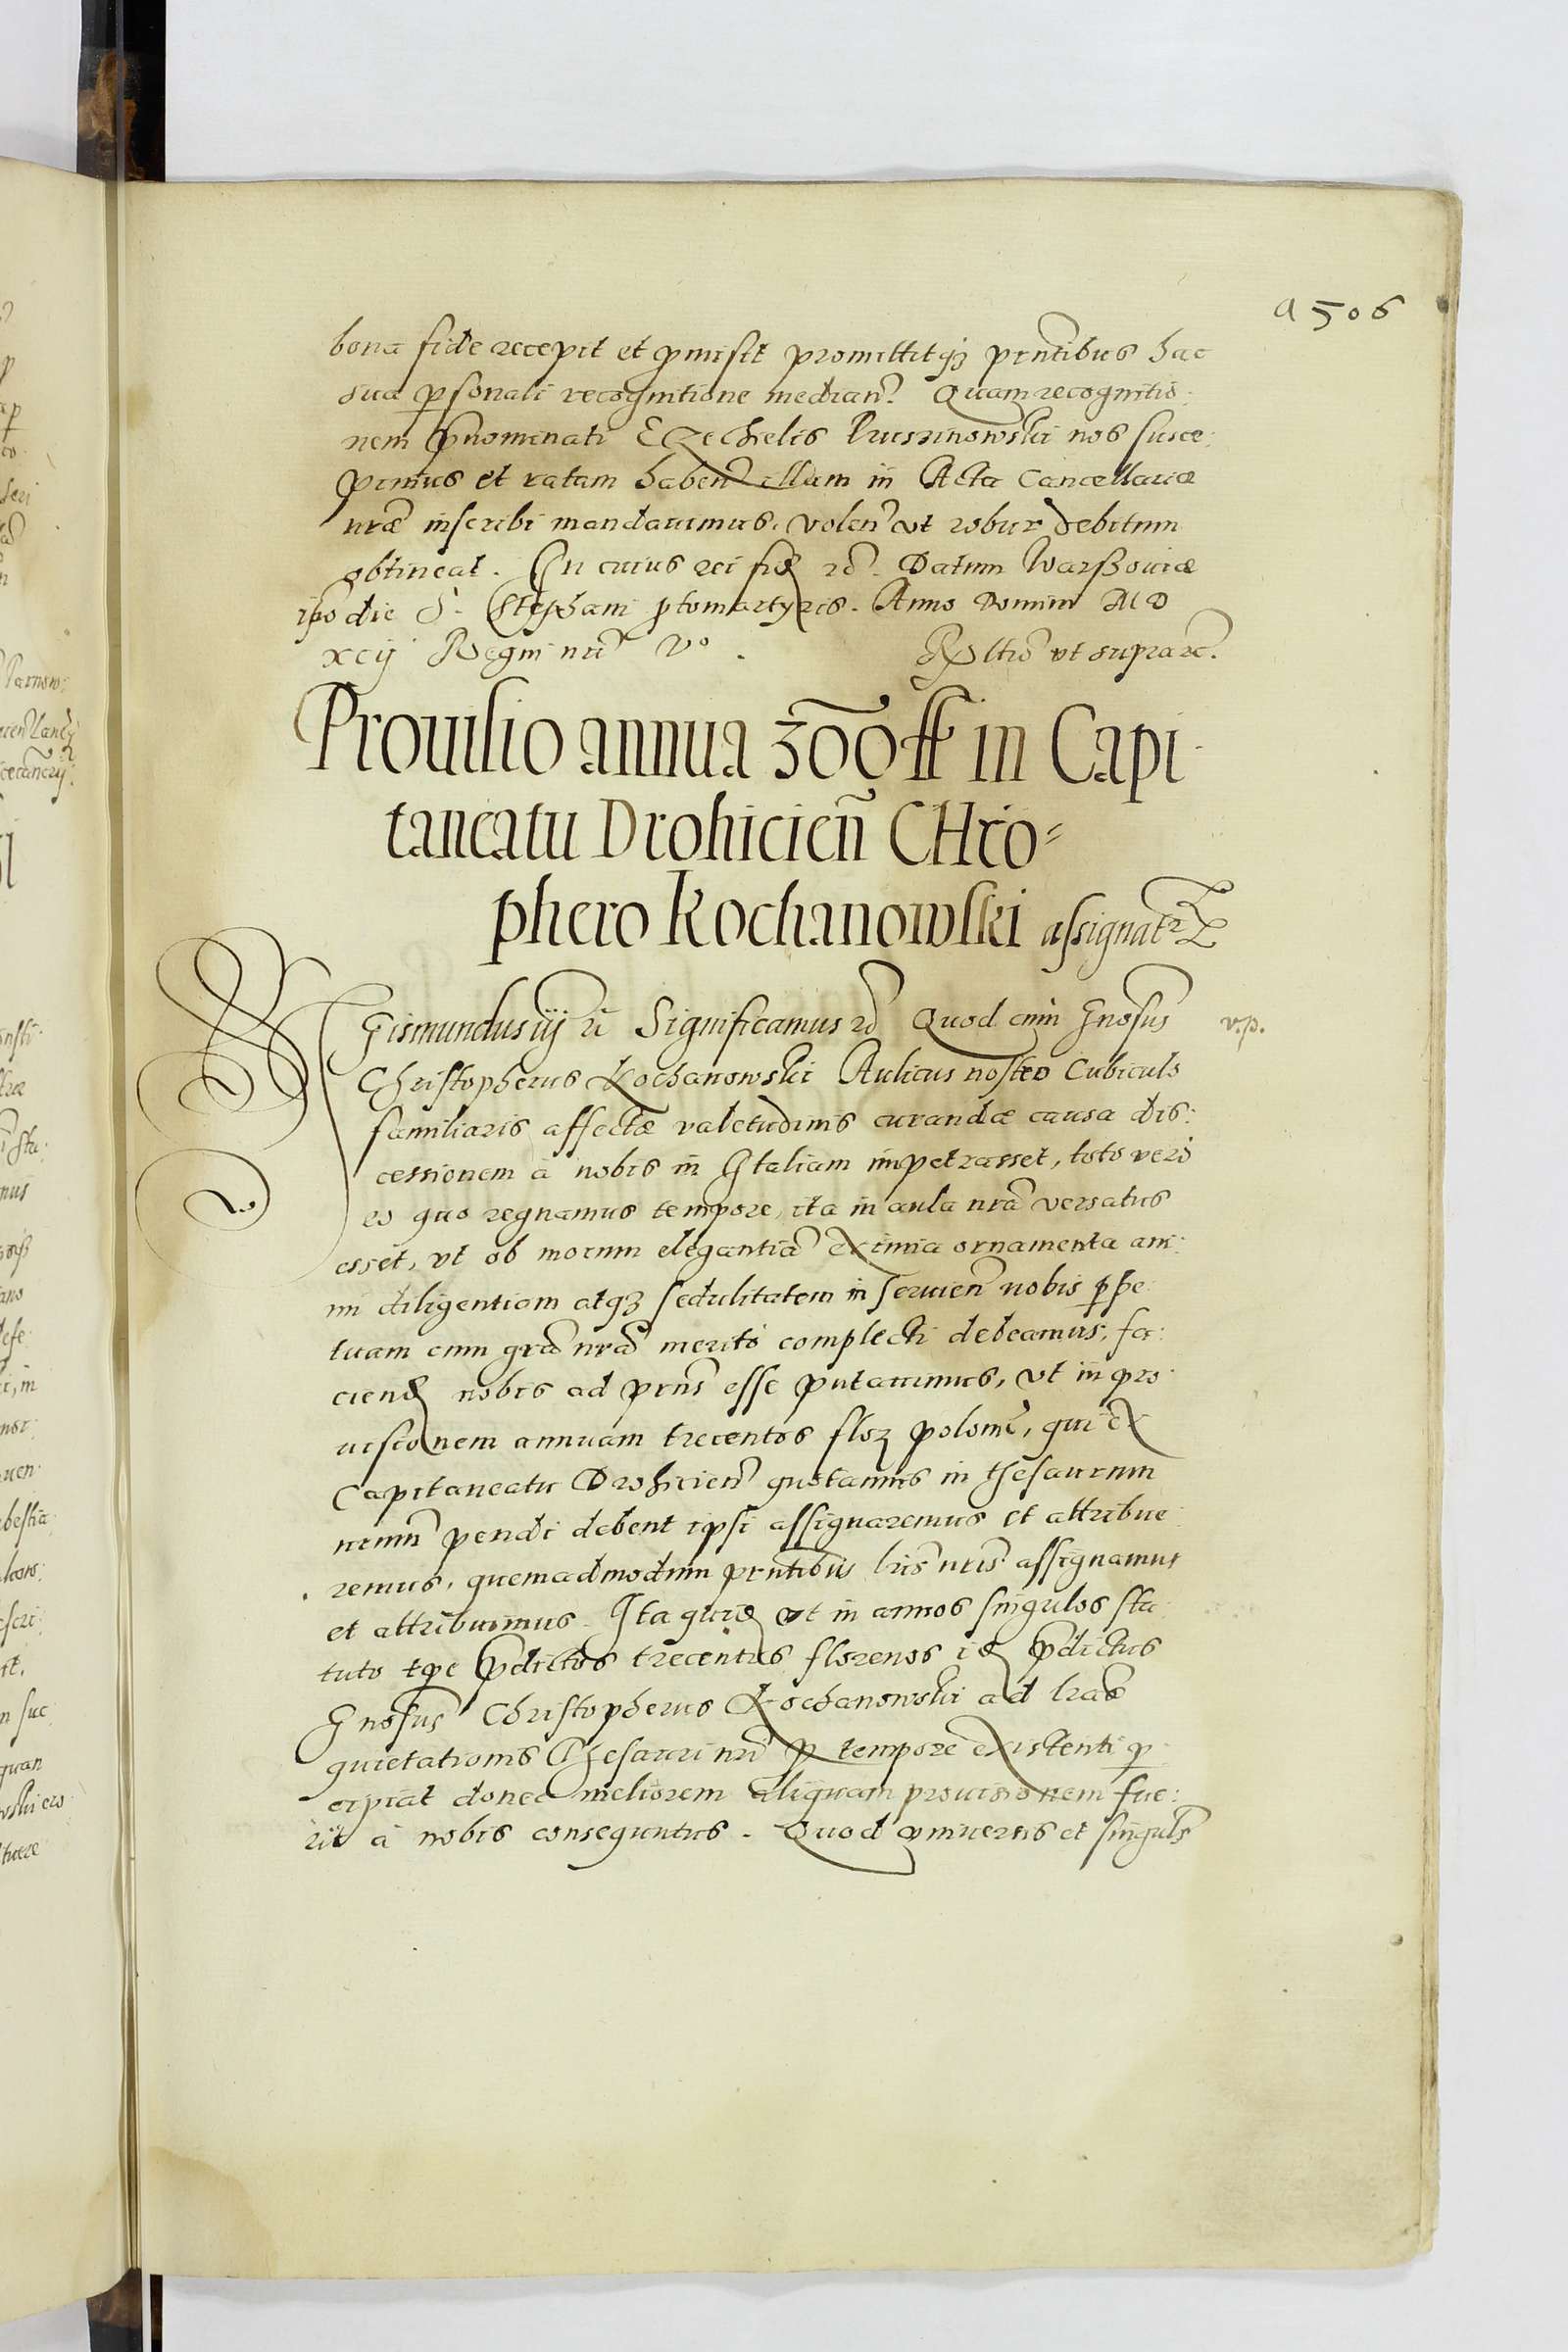 a 506
bona fide recepit et pmisit promittitqꝫ prntibus hac
sua psonali recognitione median. Quam recognitio:
nem pnominati Ezechelis Russinowski nos susce:
pimus et ratam haben illam in Acta Cancellariæ
nræ inscribi mandavimus, volen ut robur debitum
obtineat. In cuius rei fid rc. Datum Warssoviæ
ipso die S. Stephani ptomartyris. Anno Domini MD
xcij Regni nri Vo. Rltio ut supra rc.
Provisio annua 300 ff in Capi-
taneatu Drohicien CHro=
phero Kochanowski assignatr
Sigismundus iij rc Significamus rc Quod cum Gnosus v.p.
Christopherus Kochanowski Aulicus noster Cubiculo
familiaris affectæ valetudinis curandæ causa dis:
cessionem à nobis in Italiam impetrasset, toto vero
eo quo regnamus tempore, ita in aula nra versatus
esset, ut ob morum elegantia eximia ornamenta ani:
mi diligentiam atqꝫ sedulitatem in servien nobis ppe:
tuam eum gra nra merito complecti debeamus, fa:
ciend nobis ad prns esse putavimus, ut in pro:
visionem annuam trecentos floꝫ polon, qui ex
Capitaneatu Drohicien quotannis in thesaurum
nrum pendi debent ipsi assignaremus et attribue:
remus, quemadmodum prntibus lris nris assignamus
et attribuimus. Ita quid ut in annos singulos sta
tuto tpe pdictos trecentos florenos id pdictus
Gnosus Christopherus Kochanowski ad lras
quietationis Thesauri nri p tempore existenti p
cipiat donec meliorem aliquam provisionem fue:
rit à nobis consequutus. Quod universis et singuls